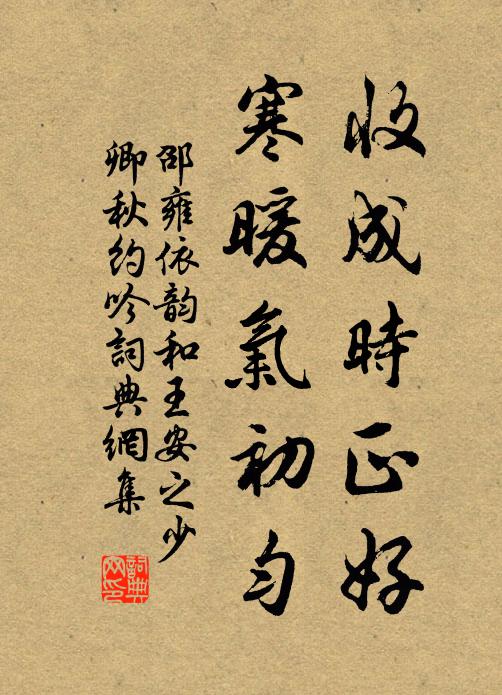 收成時正好
寒暖氣初勻
邵雍依韵和王安之少
卿秋約吟詞典網集
詞典
网印